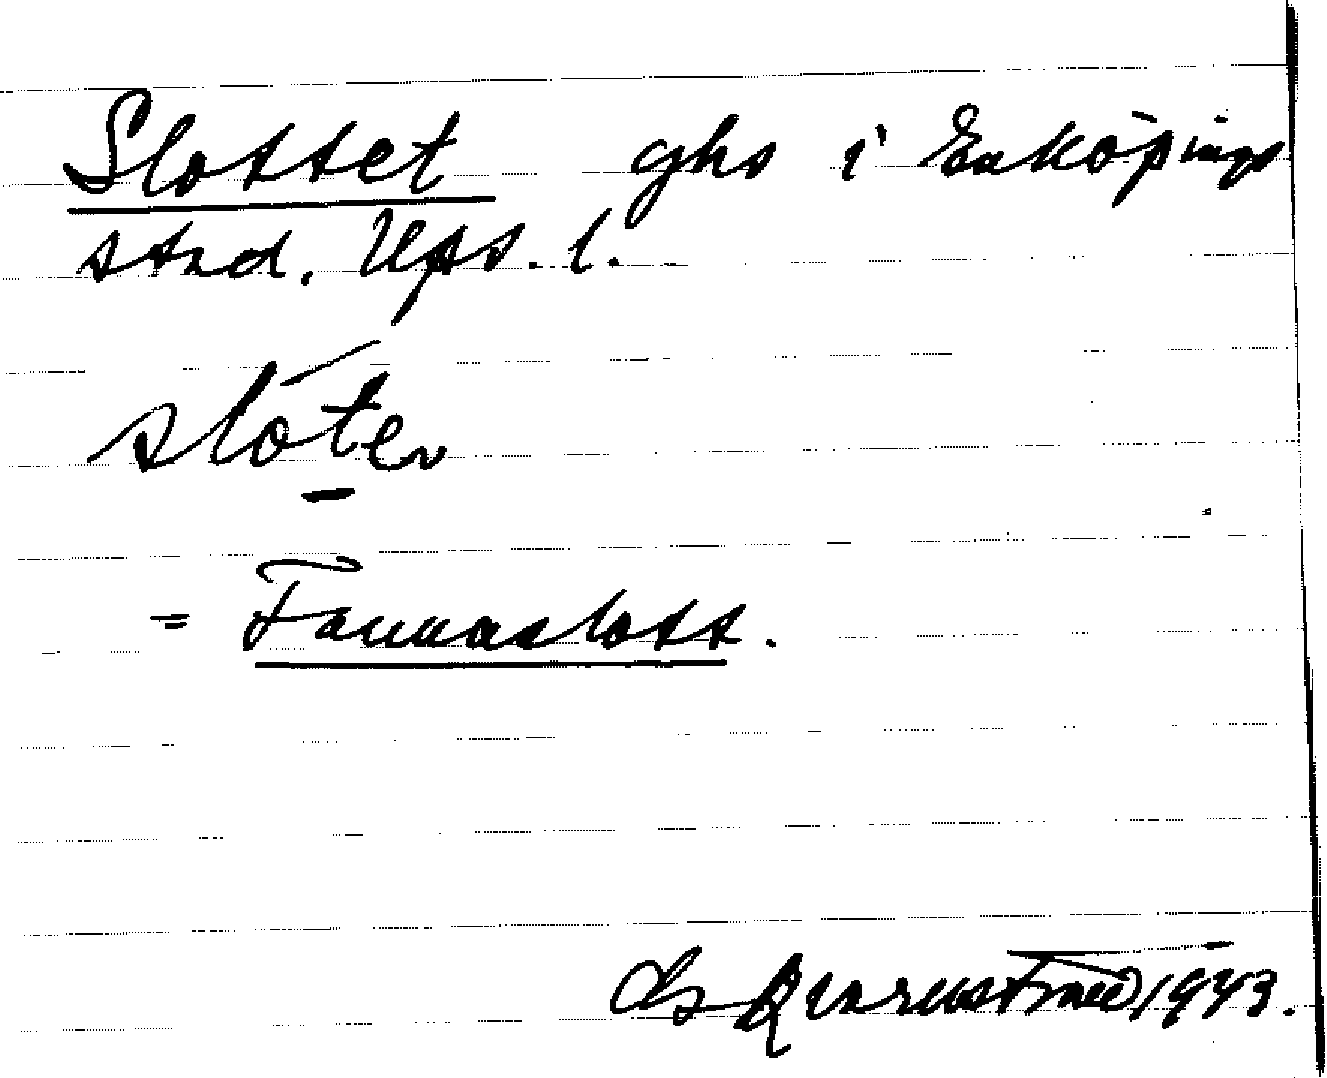 Slottet ghs i Enköpings
stad. Ups. l.
slótev
= Fannaslott.
Qvarnström 1943.